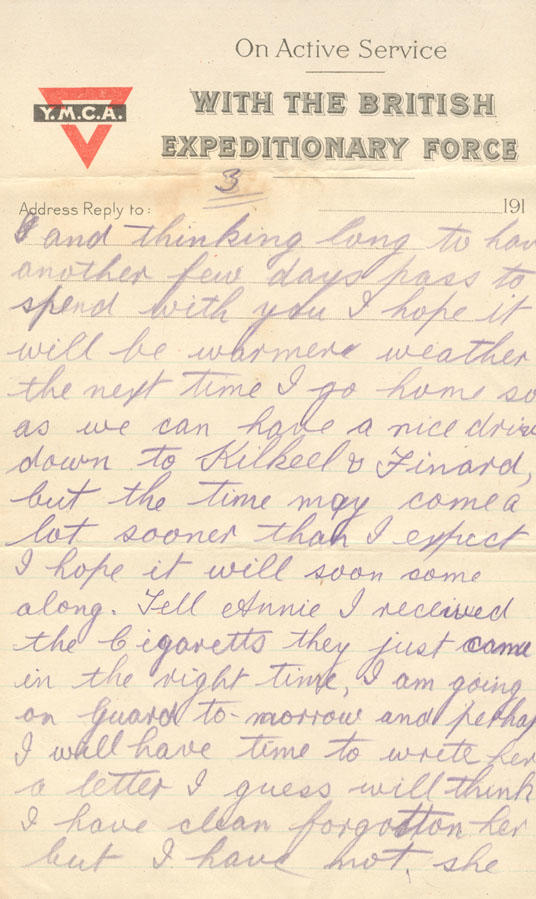 On Active Service
WITH THE BRITISH
EXPEDITIONARY FORCE
Y.M.C.A.
3
Address Reply to:
191
and thinking long to hav
another few days pass to
spend with you I hope it
will be warmere weather
the next time I go home so
as we can have a nice driv
down to Kilkeel & Finard,
but the time may come a
lot sooner than I expect
I hope it will soon come
along. Tell Annie I received
the Cigaretts they just came
in the right time, I am going
on Guard to-morrow and perhap
I will have time to write her
a letter I guess will think
I have clean forgotton her
but I have not, she